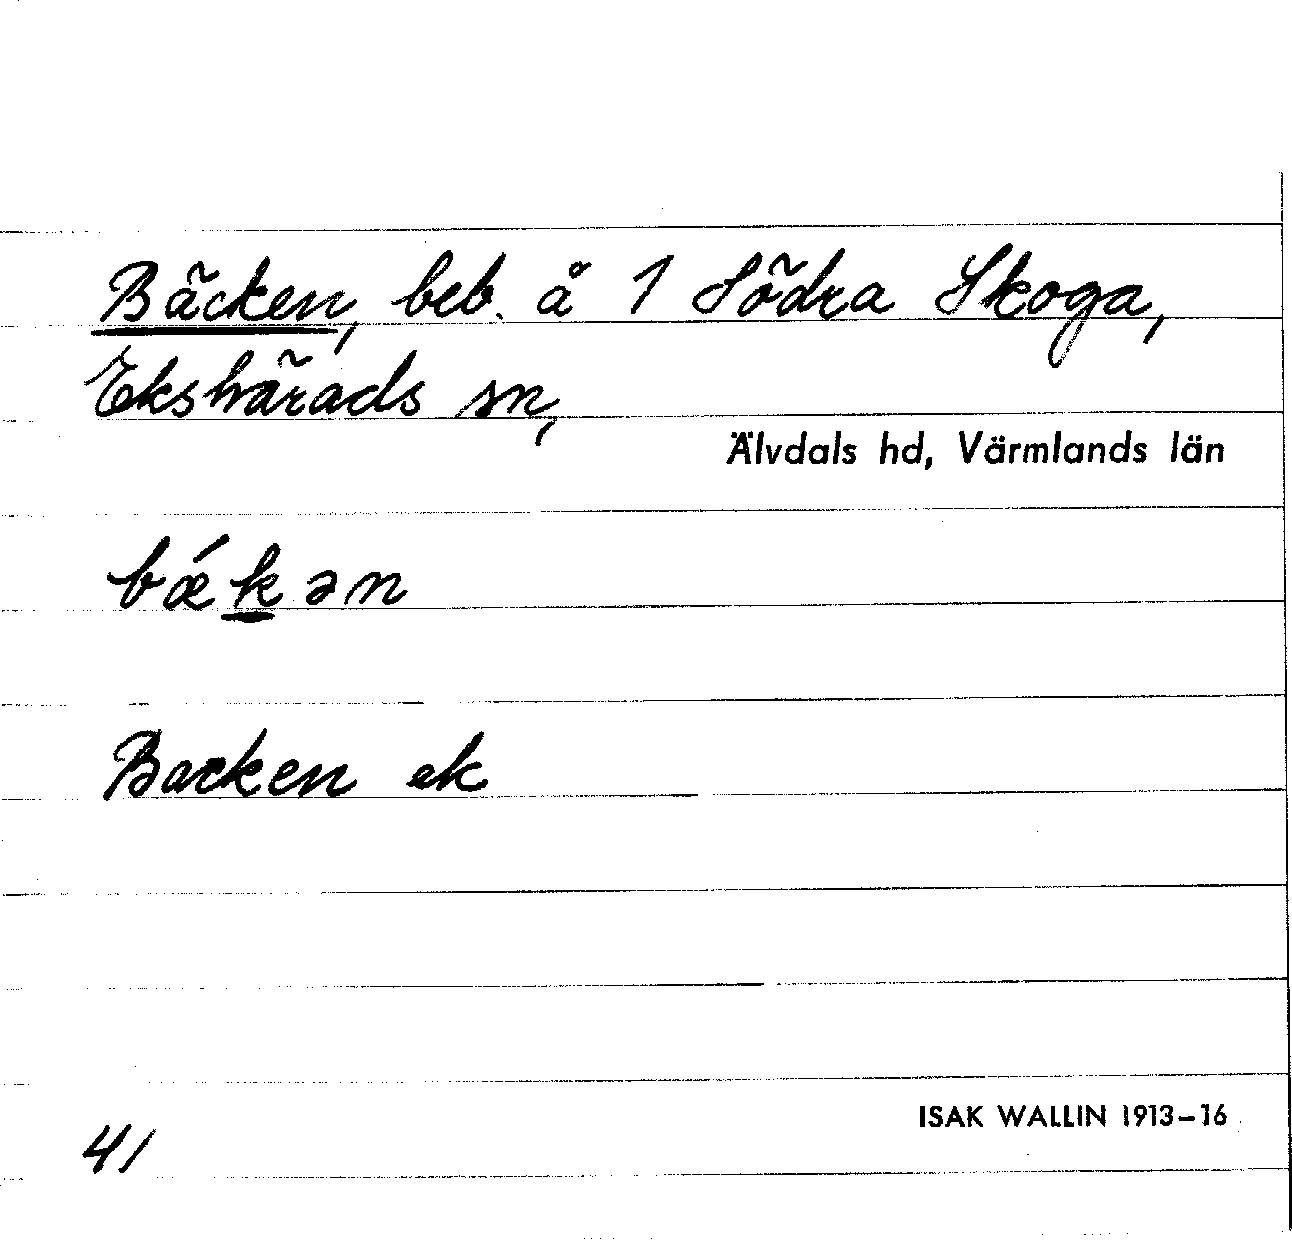 Bäcken, beb. å 1 Södra Skoga,
Ekshärads sn,
Älvdals hd, Värmlands län
bǽk̲ən
Backen ek
ISAK WALLIN 1913–16
41